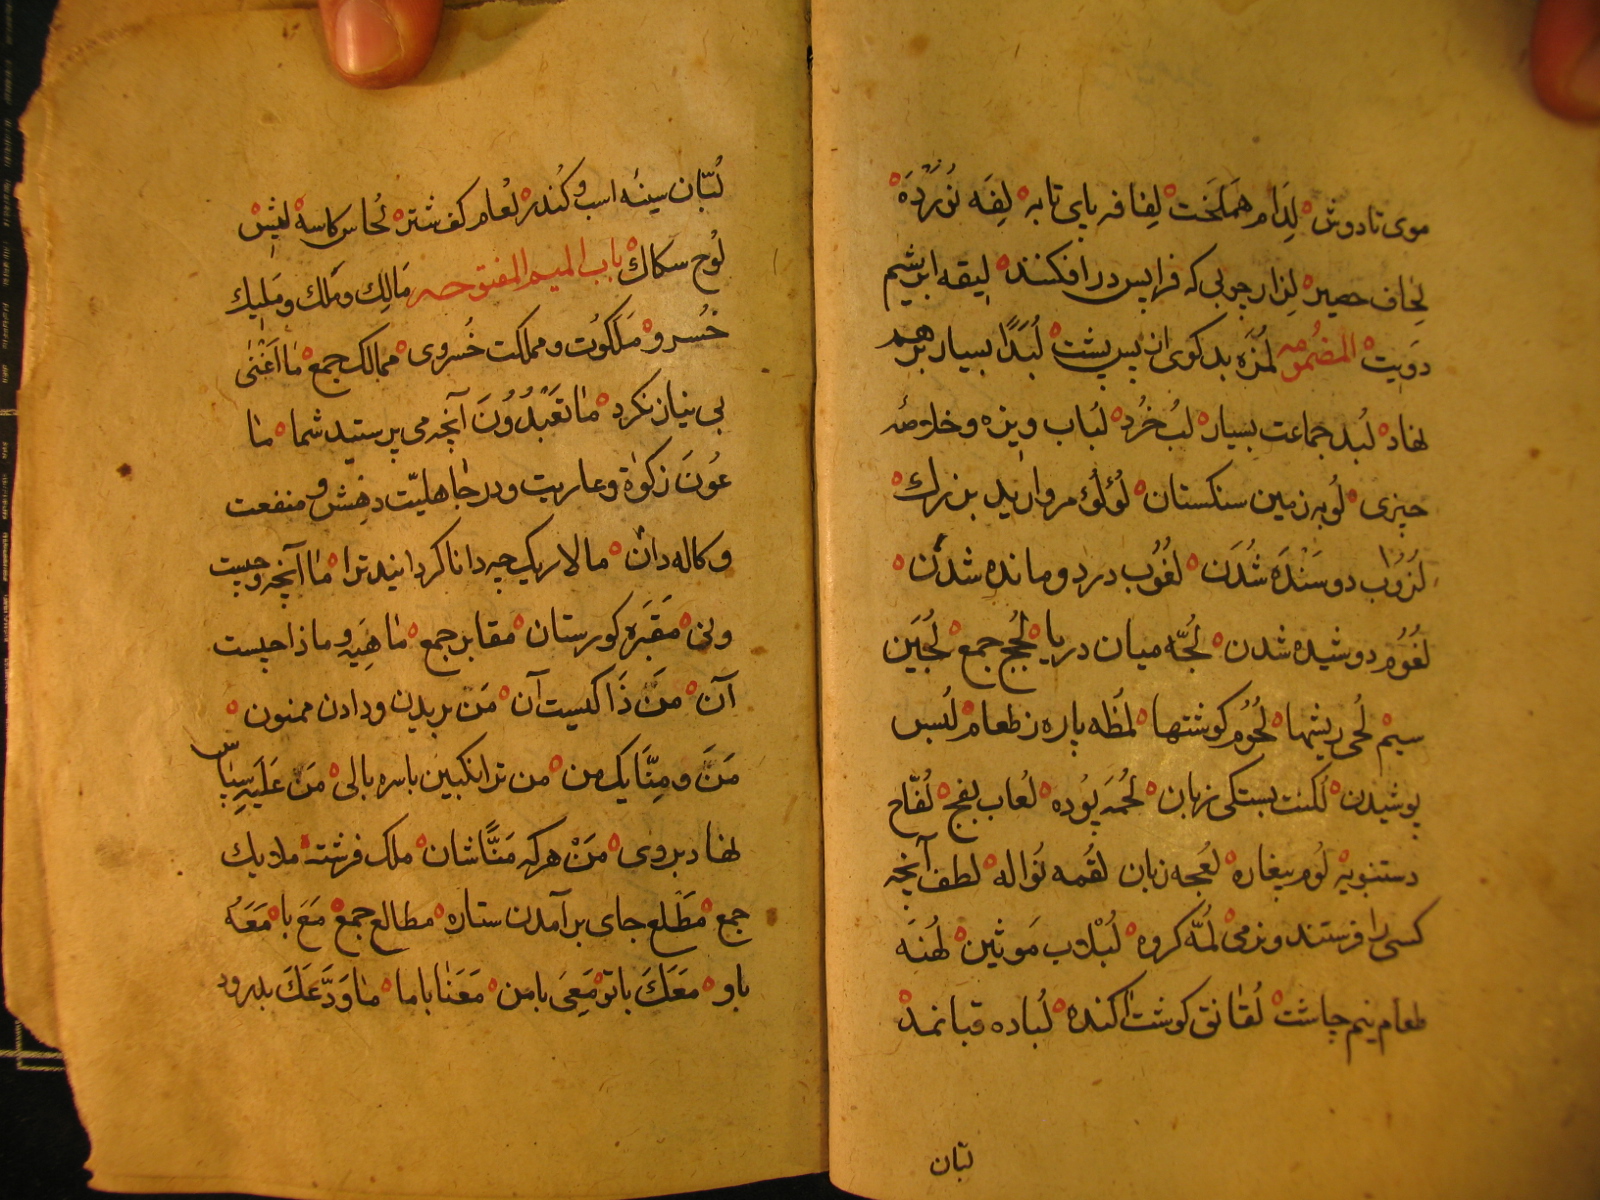 موی تا دوش لِدَام همَلَخت لِفافه پای تابه لِفَه نُوَرْدَه
لِحَاف حصیر لِزار چوبی که فرا پس در افکنند لِیقه ابریشم
دَوِیت المضمومه لُمَزَه بدکوی از پس پشت لُبَدًا بسیار برهم
نهاد لُبد جماعت بسیار لب خُرد لُباب ویزه و خلاصهٔ
چیزی لُوبه زمین سنکستان لُؤلُؤ مروارید بزرك
لُزُوب دوسَنْدَه شُدَن لُغُوب در دو مانده شدن
لُغُوم دوشیده شدن لُجّه میان دریا لُجَج جمع لُجَین
سیم لُحی ریشها لُحُوم کوشتها لُمظَه پاره ز طعام لُبس
پوشیدن لُکنت بستکی زبان لُحمَه پوده لُعاب بفج لُفّاح
دستنبویه لُوم بیغاره لُعجه زبان لقُمه نُواله لطف آنچه
کسی را فرستند و نرمی لُمّه کروه لُبْلاب مَوثین لُهنَه
طعام نیم چاشت لُقانق کوشت اکنده لُباده قبا نمد
لبّان
لُبّان سینهٔ اسب و کُندر لُعام کف شتر لُحاس کاسه لیش
لُوح سکاك باب المیم المفتوحه مَالِك و مَلك و مَلِیك
خُسرو مَلَکوُت و مملکت خُسروی ممالك جمع مٰا اَغْنٰی
بی نیاز نکرد مٰا تَعبُدُوُنَ آنچه می پرستید شما مٰا
عُونَ زکوٰة و عاریت و در جٰاهلیّت دهش و منفعت
و کاله دان ما لاریك چه دانا کردانیند ترا مٰا آنچه و چیست
ونی مَقبَره کورستان مقابر جمع مٰا هِیَه و ما ذا چیست
آن مَنْ ذَا کیست آن مَن بریدن و دادن ممنون
مَنَ و مِنّا یك من من ترانکبین باسره بالی مَنّ عَلَیه سپاس
نهاد بروی مَنْ هرکه مَنّاشان ملك فرشته ملایك
جمع مَطْلع جای برآمدن ستاره مطالع جمع مَع با مَعَهُ
باو مَعَكَ با تو مَعِیَ با من مَعَنٰا با ما مٰا وَدَّعَكَ بدرود